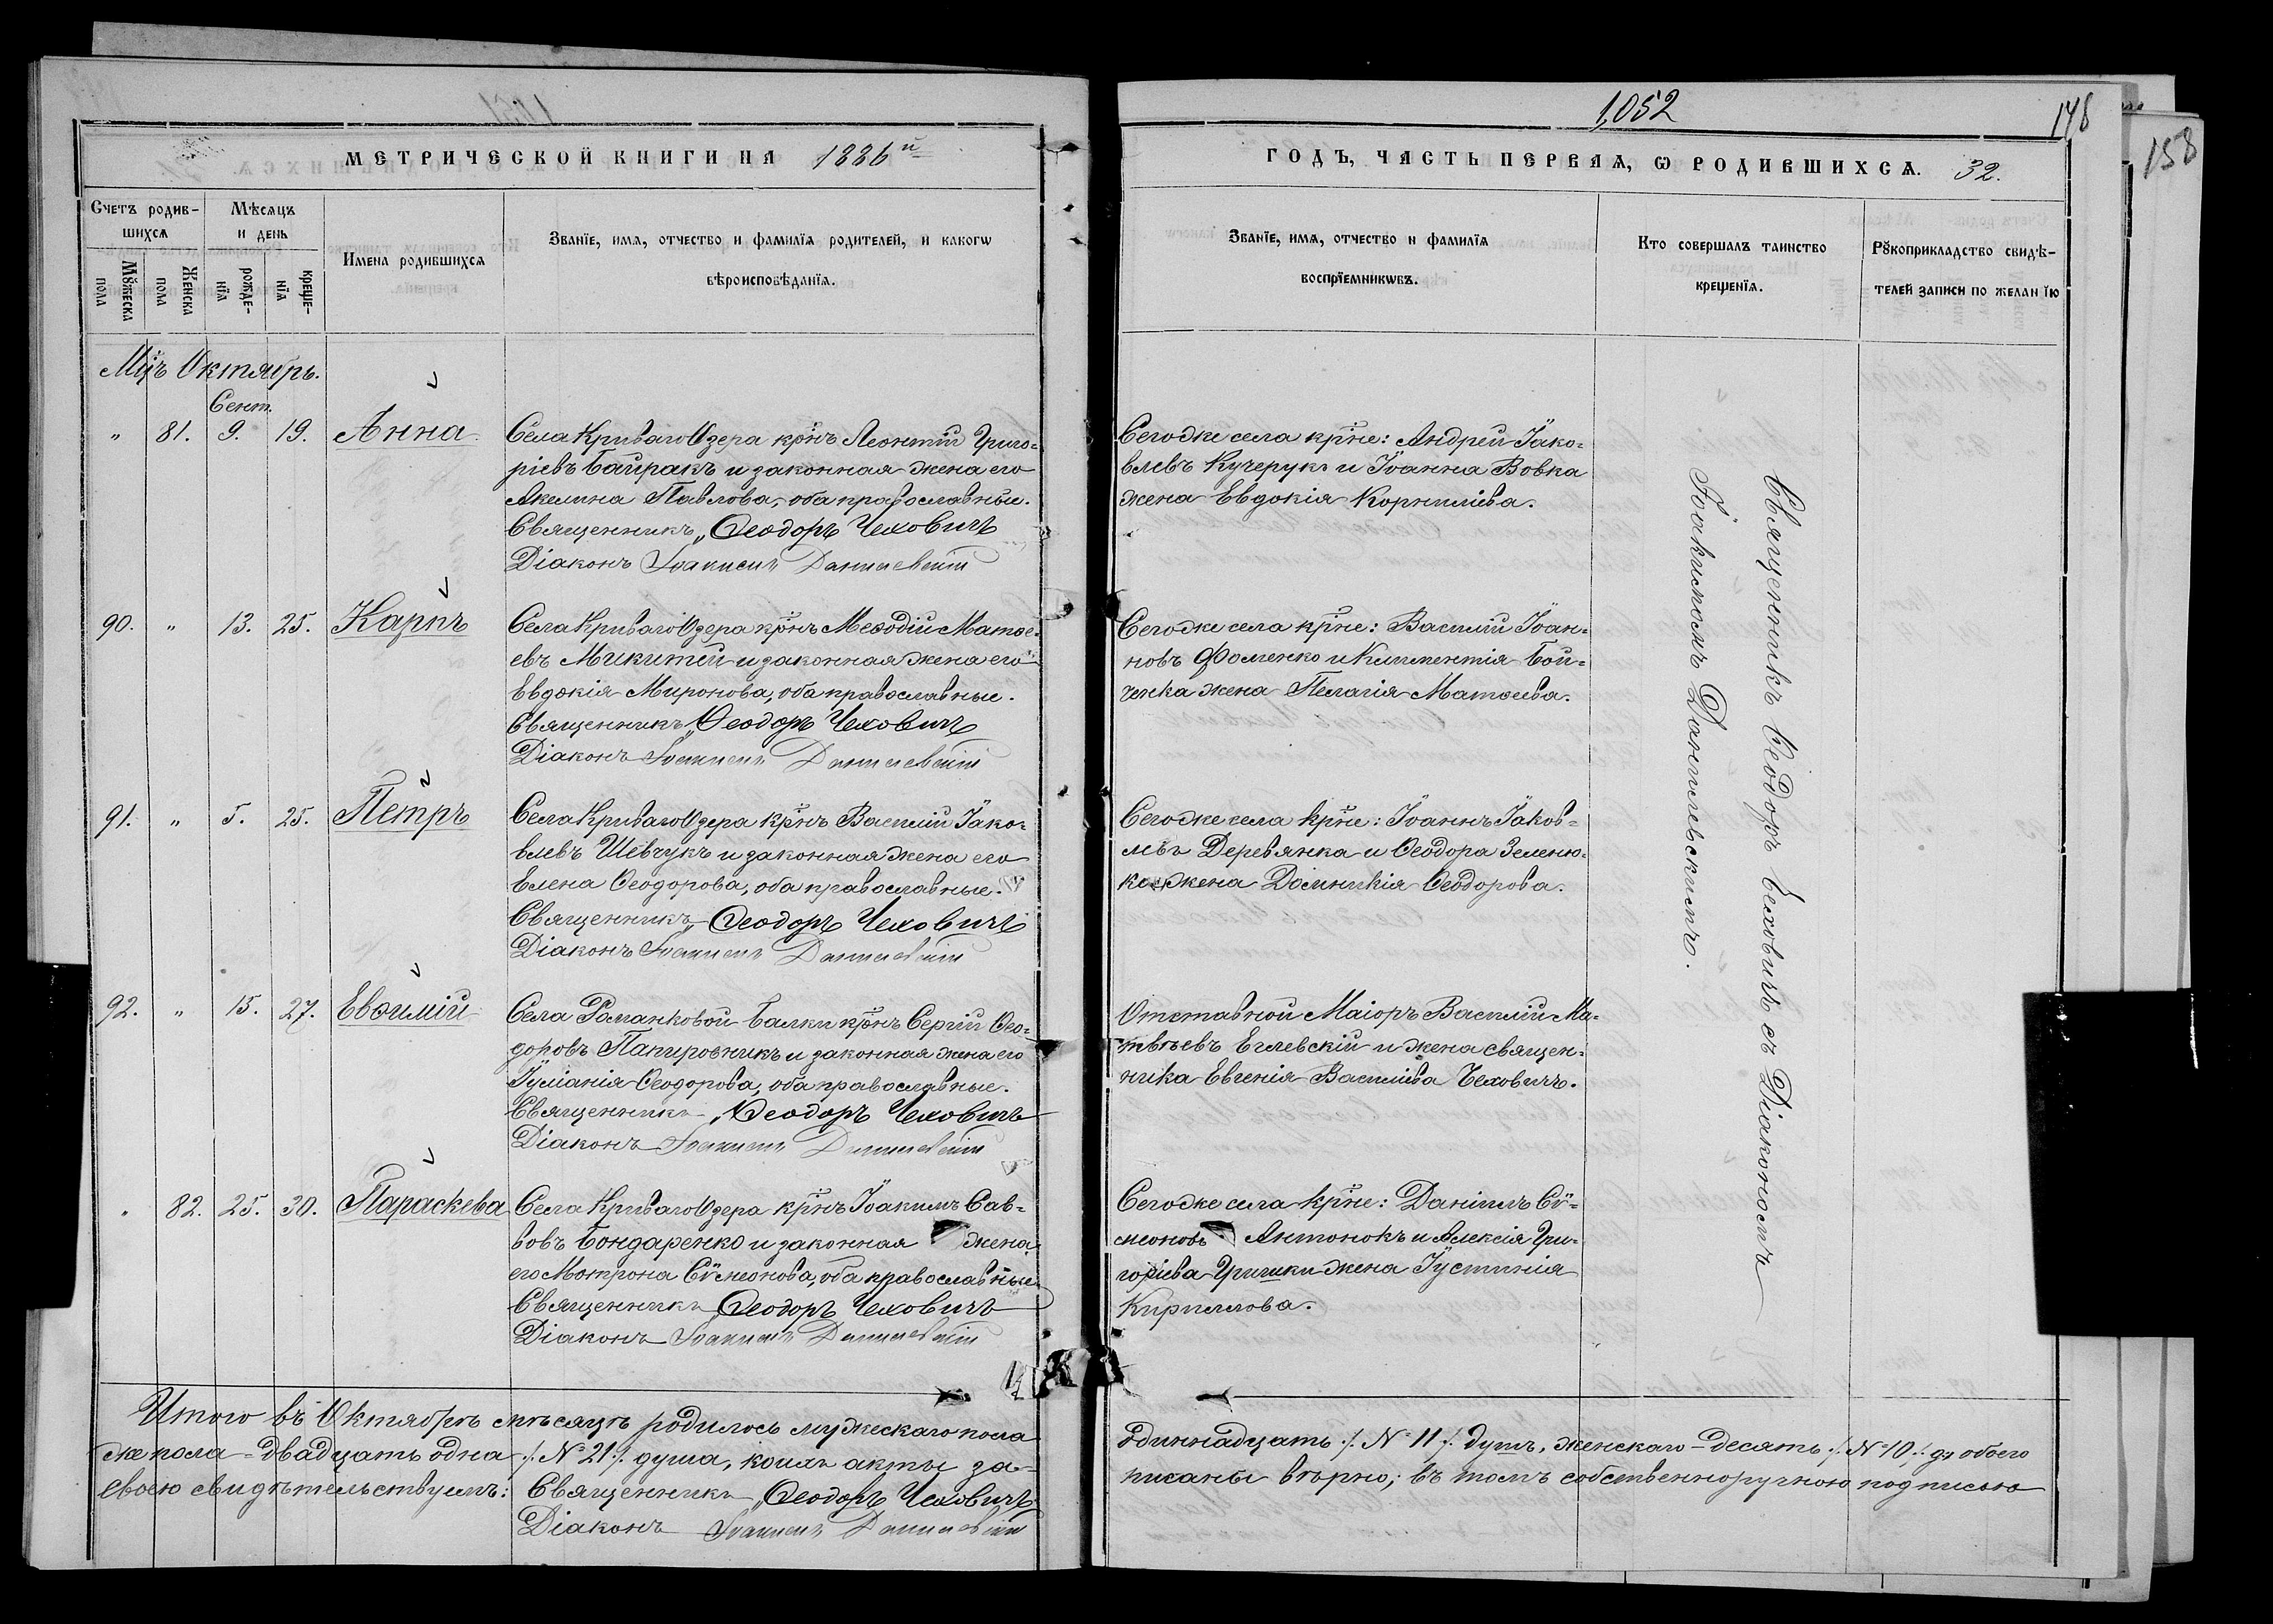 1052
148
158
МЕТРИЧЕСКОЙ КНИГИ НА 1886й
ГОДЪ, ЧАСТЬ ПЕРВАѦ, Ѡ РОДИВШИХСѦ. 32.
Счетъ родив-
шихсѧ
Мѣсѧцъ
и день
Мꙋжеска пола
Женска пола
рожде-
нїѧ
креще-
нїѧ
Имена родившихсѧ
Званїе, имѧ, отчество и фамилїѧ родителей, и какогѡ
вѣроисповѣданїѧ.
Званїе, имѧ, отчество и фамилїѧ
воспрїемникѡвъ.
Кто совершалъ таинство
крещенїѧ.
Рꙋкоприкладство свидѣ-
телей записи по желанїю
Мцъ Октябрь.
Сент.
" 81. 9. 19. Анна
Села Криваго Озера кр̃нъ Леонтій Григо-
ріевъ Байракъ и законная жена его
Акелина Павлова, оба православные.
Священникъ Ѳеодоръ Чеховичъ
Діаконъ Іоакимъ Данилевскій
Сегоже села кр̃не: Андрей Іако-
влевъ Кучерукъ и Іоанна Вовка
жена Евдокія Корниліева.
90. " 13. 25. Карпъ
Села Криваго Озера кр̃нъ Меѳодій Матѳе-
евъ Микитей и законная жена его
Евдокія Миронова, оба православные.
Священникъ Ѳеодоръ Чеховичъ
Діаконъ Іоакимъ Данилевскій
Сегоже села кр̃не: Василій Іоан-
новъ Фоменко и Климентія Бой-
ченка жена Пелагія Матѳеева.
91. " 5. 25. Петръ
Села Криваго Озера кр̃нъ Василій Іако-
влевъ Шевчукъ и законная жена его
Елена Ѳеодорова, оба православные.
Священникъ Ѳеодоръ Чеховичъ
Діаконъ Іоакимъ Данилевскій
Сегоже села кр̃не: Іоаннъ Іаков-
левъ Деревянка и Ѳеодора Зеленю-
ка жена Домникія Ѳеодорова.
92. " 15. 27. Евѳимій
Села Романковой Балки кр̃нъ Сергій Ѳео-
доровъ Папировникъ и законная жена его
Іуліанія Ѳеодорова, оба православные.
Священникъ Ѳеодоръ Чеховичъ
Діаконъ Іоакимъ Данилевскій
Отставной Маіоръ Василій Ма-
твѣевъ Еглевскій и жена священ-
ника Евгенія Василіева Чеховичъ.
" 82. 25. 30. Параскева
Села Криваго Озера кр̃нъ Іоакимъ Сав-
вовъ Бондаренко и законная жена
его Мотрона Сѵмеонова, оба православные.
Священникъ Ѳеодоръ Чеховичъ
Діаконъ Іоакимъ Данилевскій
Сегоже села кр̃не: Даніилъ Сѵ-
меоновъ Антонокъ и Алексія Гри-
горіева Гришки жена Іустинія
Кириллова.
Священникъ Ѳеодоръ Чеховичъ съ Діакономъ
Іоакимомъ Данилевскимъ.
Итого въ Октябрѣ мѣсяцѣ родилось мужескаго пола одиннадцать ./. № 11 ./. душъ, женскаго – десять ./. № 10 ./. д., обоего
же пола – двадцать одна ./. № 21 ./. душа, коихъ акты записаны вѣрно; въ томъ собственноручною подписью
своею свидѣтельствуемъ: Священникъ Ѳеодоръ Чеховичъ
Діаконъ Іоакимъ Данилевскій